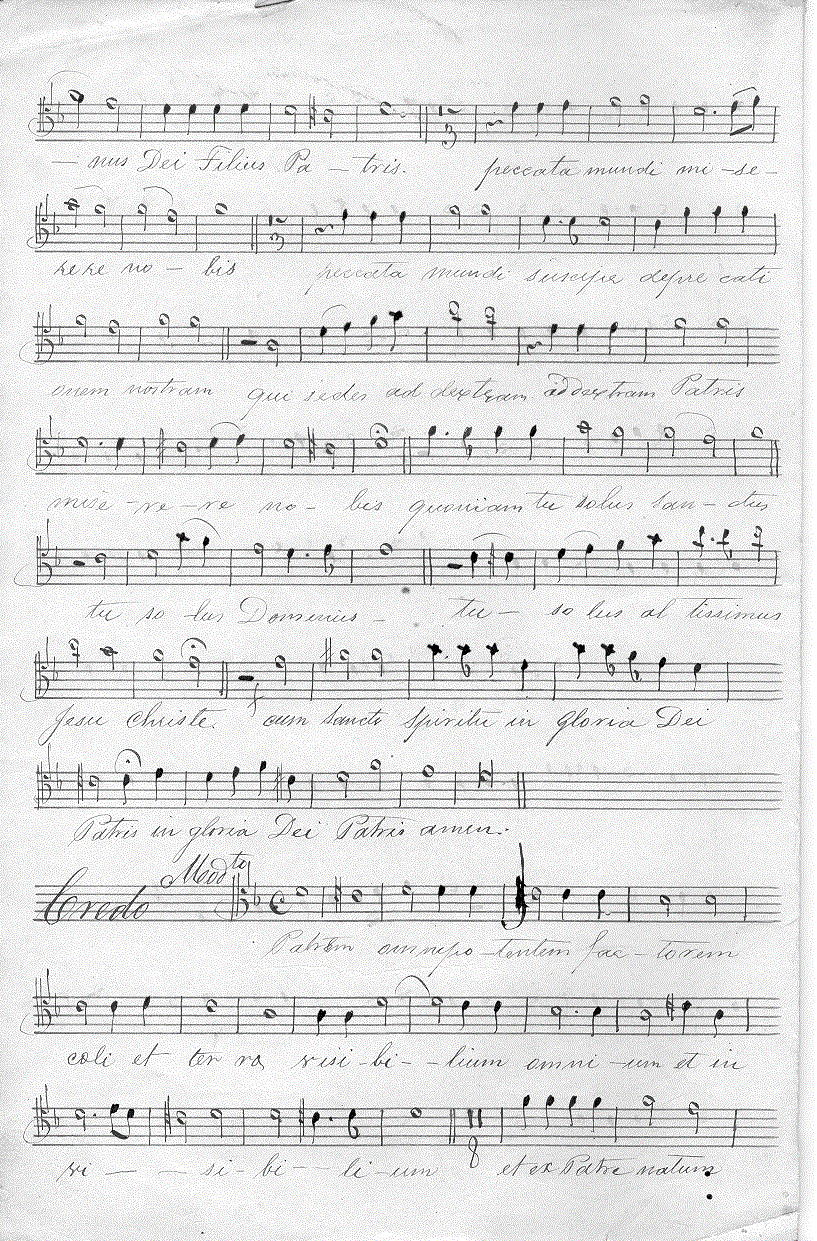 — nus Dei Filius Pa – tris. peccata mundi mi – se –
rere no – bis peccata mundi suscipe depre cati
onem nostram qui sedes ad dextram ad dextram Patris
mise – re – re no – bis quoniam tu solus san – ctus
tu so – lus Domenius – tu – so lus al tissimus
Jesu Christe. cum sancto spiritu in gloria Dei
Patris in gloria Dei Patris amen.
Credo Modto
Patrem omnipo – tentem fac – torem
coli et ter ra visi – bi – – lium omni – um et in
3
3
8
vi — — si – bi – – li – um et ex Patre natum